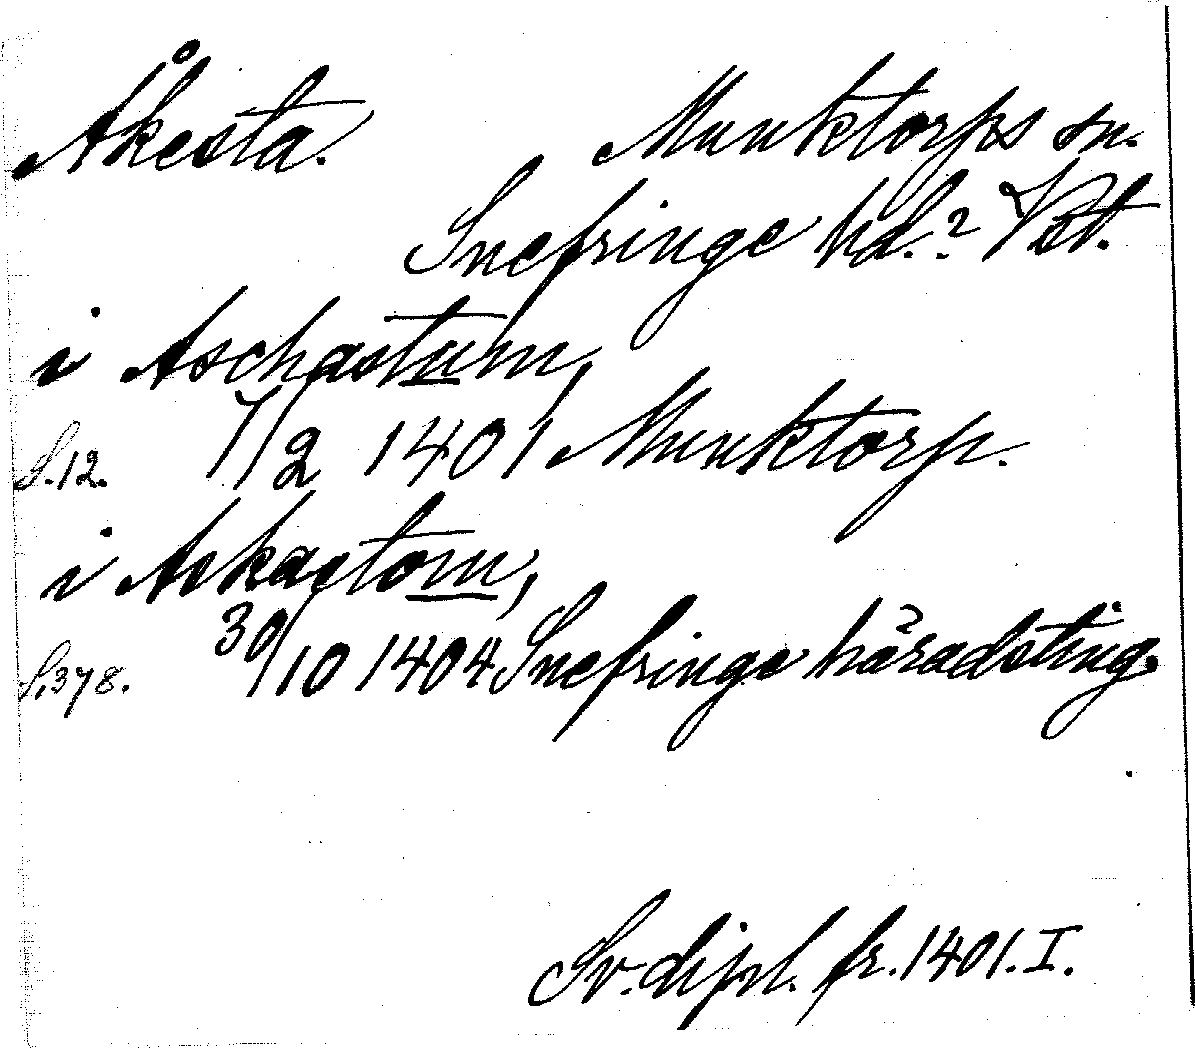 Åkesta. Munktorps sn.
Snefringe hd.? Vst.
i Aschastum,
S.12. 7/2 1401 Munktorp.
i Askastom,
S.378. 30/10 1404 Snefringe häradsting.
Sv. dipl. fr. 1401. I.